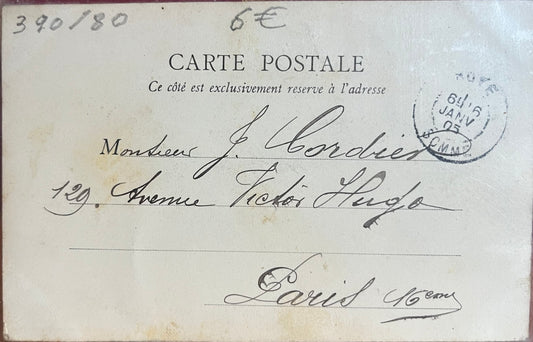 390/80
6€
CARTE POSTALE
Ce côté est exclusivement reserve à l'adresse
6
JANV
05
SOMME
Monsieur J. Cordier
129. Avenue Victor Hugo
Paris 16eme